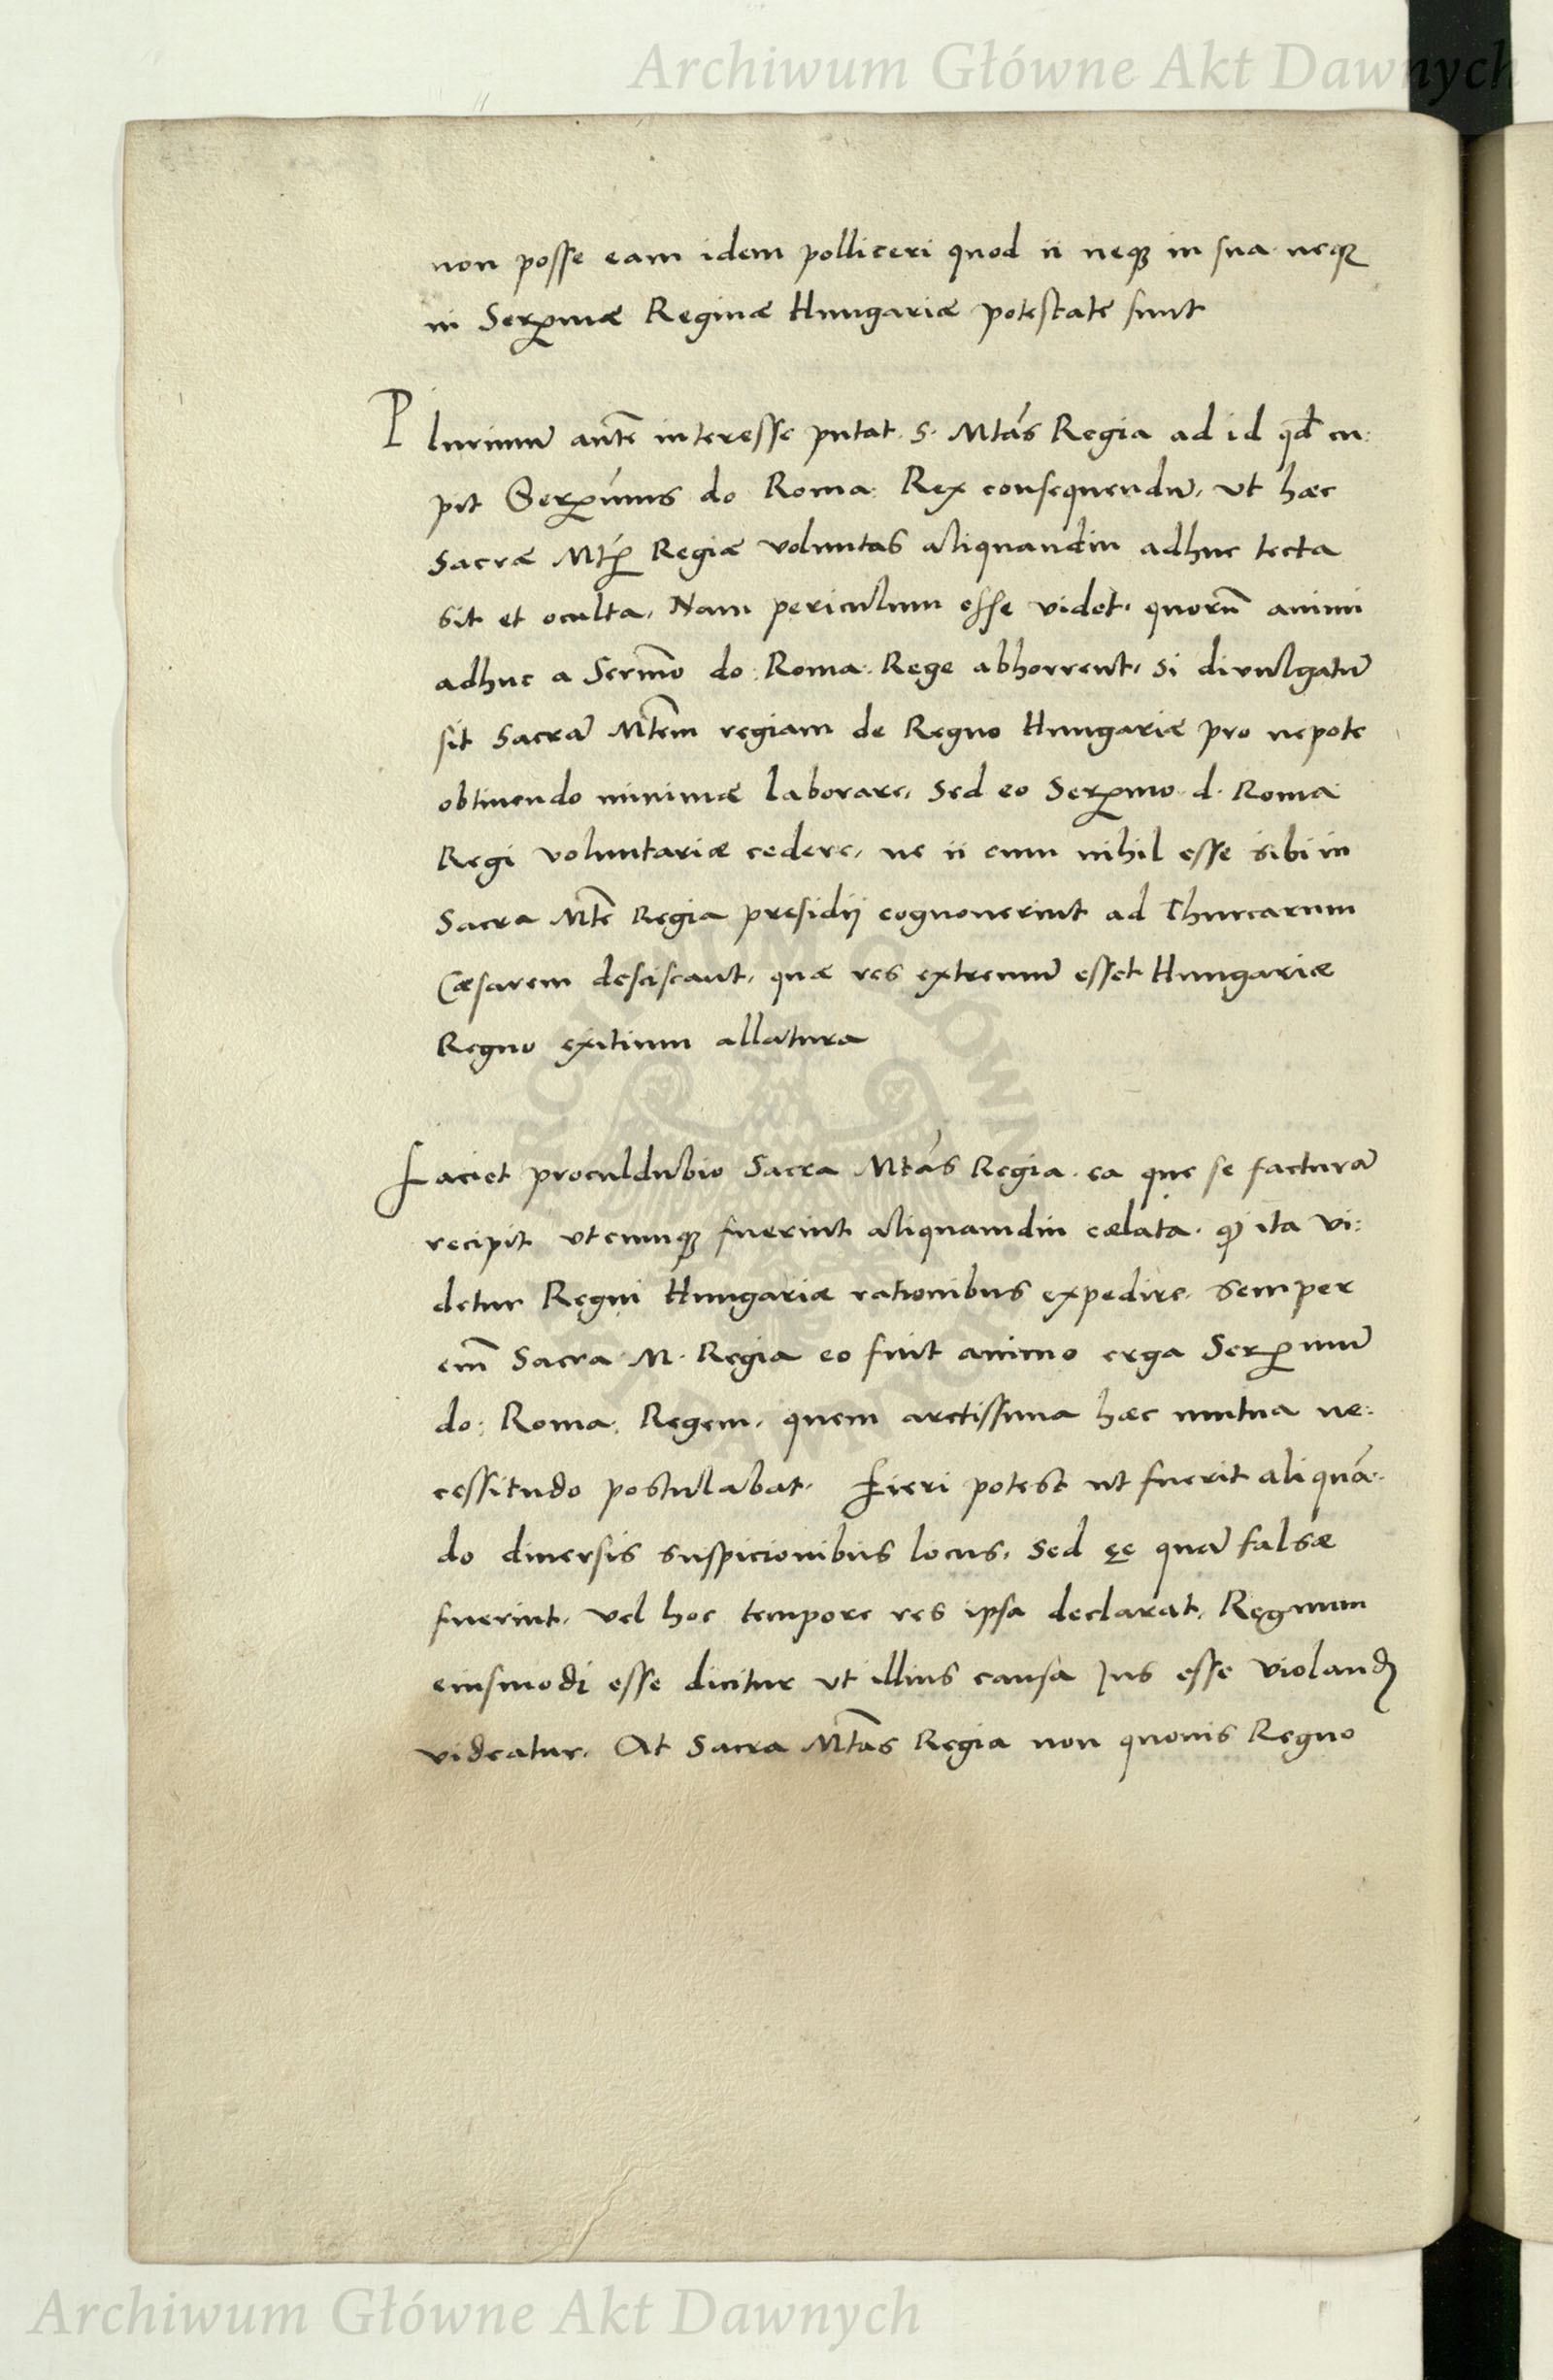 Archiwum Główne Akt Dawnych
non posse eam idem polliceri quod ii neqꝫ in sua neqꝫ
in Serꝑmæ Reginæ Hungariæ potestate sunt
Plurimū autē interesse putat S. Mtás Regia ad id qđ cu:
pit Serꝑimus do Roma: Rex consequendū, ut hæc
Sacræ Mtꝭ Regiæ voluntas aliquandiu adhuc tecta
sit et oculta, Nam periculum esse videt, quorū animi
adhuc a Sermō do: Roma: Rege abhorrent, si divulgatū
sit Sacrā Mtēm regiam de Regno Hungariæ pro nepote
obtinendo minimæ laborare, Sed eo Serꝑmo d. Roma:
Regi voluntariæ cedere, ne ii cum nihil esse sibi in
Sacra Mtē Regia presidij cognouerint ad Thurcarum
Cæsarem desciscant, quæ res extremū esset Hungariæ
Regno exitium allatura
Faciet proculdubio Sacra Mtás Regia ea que se facturā
recipit utcumqꝫ fuerint aliquamdiu cælata, ꝙ ita vi:
detur Regni Hungariæ rationibus expedire, Semper
em̄ Sacra M. Regia eo fuit animo erga Serꝑmū
do: Roma: Regem, quem arctissima hæc mutua ne:
cessitudo postulabat. Fieri potest ut fuerit aliquā:
do diuersis suspicionibus locus, Sed ęę quā falsæ
fuerint, vel hoc tempore res ipsa declarat, Regnum
eiusmodi esse dicitur ut illius causa Jus esse violandū
videatur. At Sacra Mtās Regia non quouis Regno
Archiwum Główne Akt Dawnych